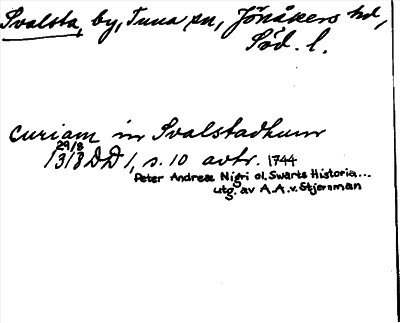 Svalsta, by, Tuna sn, Jönåkers hd,
Söd. l.
curiam in Svalstadhum
29/8
1318 DD 1, s. 10 avtr. 1744
Peter Andreæ Nigri ol. Swarts Historia...
utg. av A.A.v. Stjernman